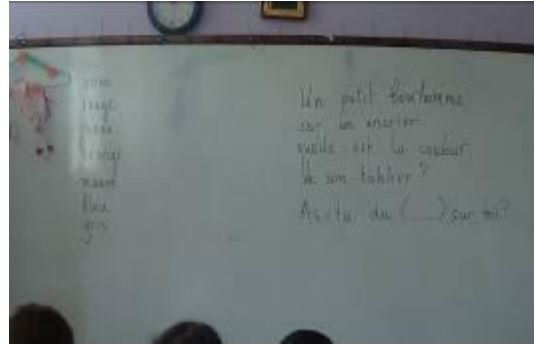 rouge
jaune
orange
marron
bleu
gris
Un petit bonhomme
sur un encrier
quelle est la couleur
de son tablier ?
As-tu du (___) sur toi ?